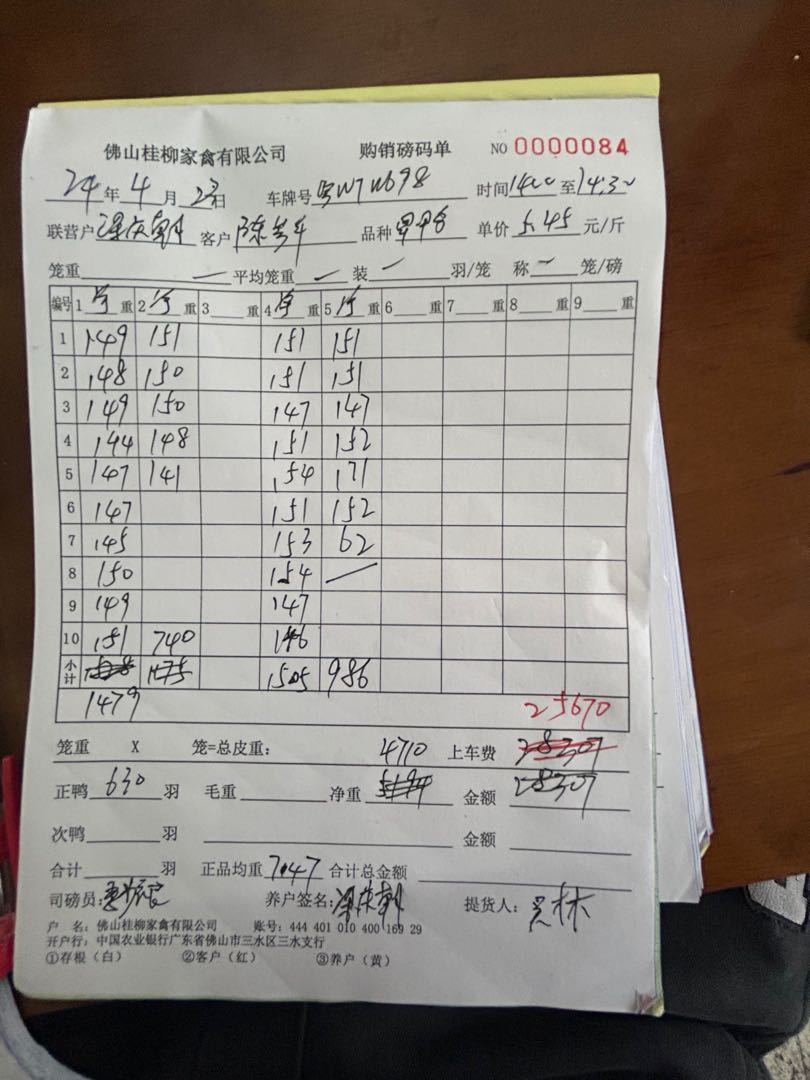 佛山桂柳家禽有限公司 购销磅码单 NO 0000084
24年4月23日 车牌号 粤W7W698 时间1400至14:30
联营户 客户 陈 品种 单价 5.45 元/斤
笼重 — 平均笼重 — 装 — 羽/笼 称 — 笼/磅
编号 1 重 2 重 3 重 4 重 5 重 6 重 7 重 8 重 9 重
1 149 151 151 151
2 148 150 151 151
3 149 150 147 147
4 144 148 151 152
5 147 141 154 171
6 147 151 152
7 145 153 62
8 150 154 —
9 149 147
10 151 740 146
小计 1505 986
1479 25670
笼重 X 笼=总皮重: 4710 上车费 28307
正鸭 630 羽 毛重 净重 金额 28307
次鸭 羽 金额
合计 羽 正品均重 7.47 合计总金额
司磅员: 养户签名: 提货人: 林
户 名: 佛山桂柳家禽有限公司 账号: 444 401 010 400 169 29
开户行: 中国农业银行广东省佛山市三水区三水支行
①存根(白) ②客户(红) ③养户(黄)